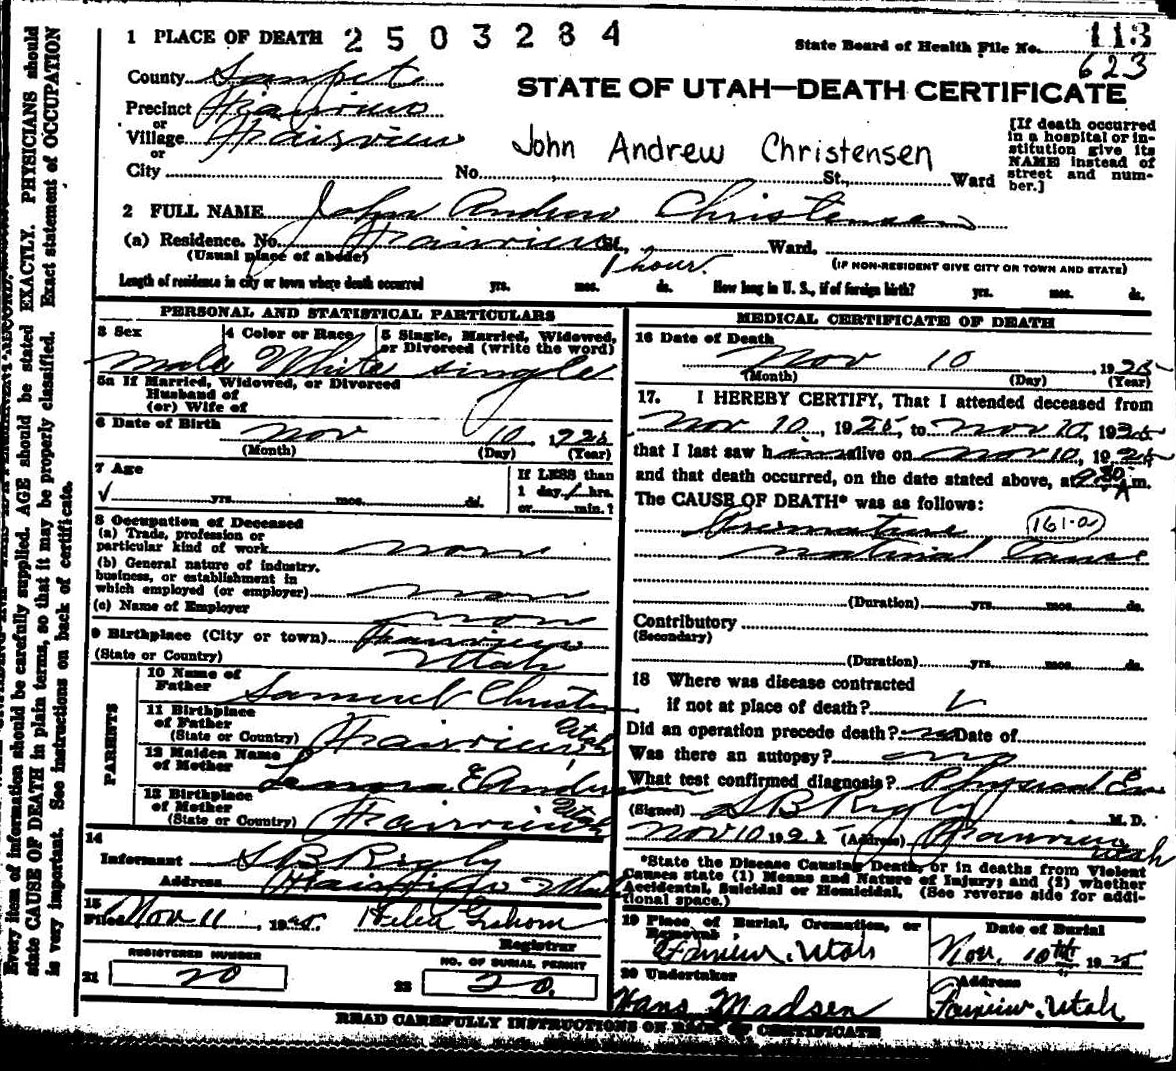 1 PLACE OF DEATH 2503284
State Board of Health File No. 113
623
County Sanpete
STATE OF UTAH—DEATH CERTIFICATE
Precinct Fairview
or
Village Fairview
or
City No. St. Ward
John Andrew Christensen
[If death occurred in a hospital or institution give its NAME instead of street and number.]
2 FULL NAME John Andrew Christensen
(a) Residence. No. Fairview St., Ward.
(Usual place of abode) (IF NON-RESIDENT GIVE CITY OR TOWN AND STATE)
1 hour.
Length of residence in city or town where death occurred yrs. mos. ds. How long in U. S., if of foreign birth? yrs. mos. ds.
PERSONAL AND STATISTICAL PARTICULARS
3 Sex 4 Color or Race 5 Single, Married, Widowed, or Divorced (write the word)
male White single
5a If Married, Widowed, or Divorced
Husband of
(or) Wife of
6 Date of Birth Nov 10, 1925
(Month) (Day) (Year)
7 Age If LESS than
✓ yrs. mos. ds. 1 day, 1 hrs.
or min.?
8 Occupation of Deceased
(a) Trade, profession or
particular kind of work none
(b) General nature of industry,
business, or establishment in
which employed (or employer) none
(c) Name of Employer none
9 Birthplace (City or town) Fairview
(State or Country) Utah
PARENTS
10 Name of
Father Samuel Christen
11 Birthplace
of Father
(State or Country) Fairview Utah
12 Maiden Name
of Mother E Anderson
13 Birthplace
of Mother
(State or Country) Fairview Utah
14
Informant S B Rigby
Address Fairview Utah
15
Filed Nov 11, 1925 Helen Graham
Registrar
REGISTERED NUMBER NO. OF BURIAL PERMIT
21 20 22 20.
MEDICAL CERTIFICATE OF DEATH
16 Date of Death
Nov 10, 1925
(Month) (Day) (Year)
17. I HEREBY CERTIFY, That I attended deceased from
Nov 10, 1925, to Nov 10, 1925
that I last saw h alive on Nov 10, 1925
and that death occurred, on the date stated above, at 9 30 A m.
The CAUSE OF DEATH* was as follows:
Premature 161-a
natural Cause
(Duration) yrs. mos. ds.
Contributory
(Secondary)
(Duration) yrs. mos. ds.
18 Where was disease contracted
if not at place of death? ✓
Did an operation precede death? no Date of
Was there an autopsy? no
What test confirmed diagnosis? Physical Ex
(Signed) S B Rigby M. D.
Nov 10 1925 (Address) Fairview Utah
*State the Disease Causing Death, or in deaths from Violent
Causes state (1) Means and Nature of Injury; and (2) whether
Accidental, Suicidal or Homicidal. (See reverse side for additional space.)
19 Place of Burial, Cremation, or Removal. Date of Burial
Fairview, Utah Nov. 10th 1925
20 Undertaker Address
Hans Madsen Fairview, Utah
READ CAREFULLY INSTRUCTIONS ON BACK OF CERTIFICATE
Every item of information should be carefully supplied. AGE should be stated EXACTLY. PHYSICIANS should
state CAUSE OF DEATH in plain terms, so that it may be properly classified. Exact statement of OCCUPATION
is very important. See instructions on back of certificate.